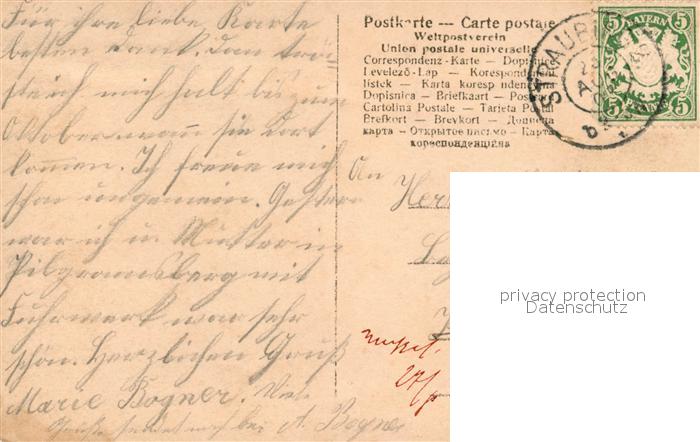 Für ihre liebe Karte
besten Dank. Dan
steich mich halt bis zum
Oktober wann sie dort
kommen. Ich freue mich
schon ungemein. Gestern
war ich u. Mutter in
Pilgramsberg mit
Fuhrwerk war sehr
schön. Herzlichen Gruß
Marie Bogner. Viele
Grüße sendet auch bei A. Bogner
Postkarte -- Carte postale
Weltpostverein
Union postale universelle
Correspondenz-Karte — Dopisnice
Levelező-Lap — Korespond
listek — Karta koresp nden
Dopisnica — Briefkaart — Post
Cartolina Postale — Tarjeta Postal
Brefkort — Brevkort — Дописна
карта — Открытое письмо — Карта
кореспонденцийна
STRAUB
5 BAYERN 5
5 5
An
Herr
privacy protection
Datenschutz